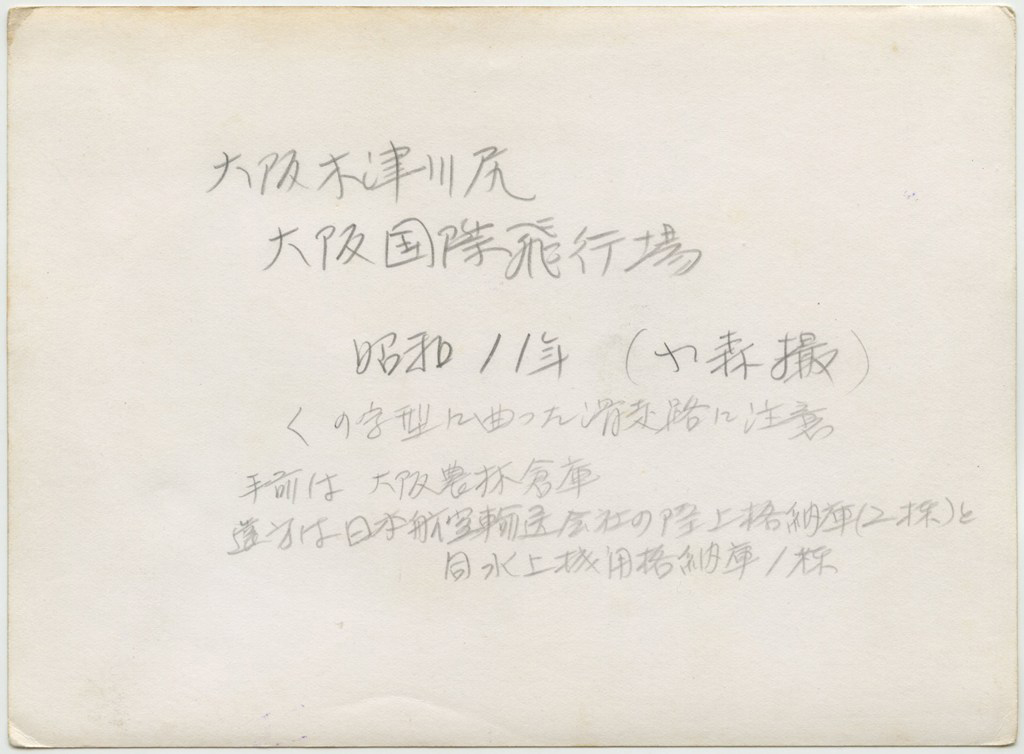 大阪木津川尻
大阪国際飛行場
昭和11年 (小森撮)
くの字型に曲った滑走路に注意
手前は大阪農林倉庫
遠方は日本航空輸送会社の陸上格納庫(2棟)と
同水上機用格納庫1棟